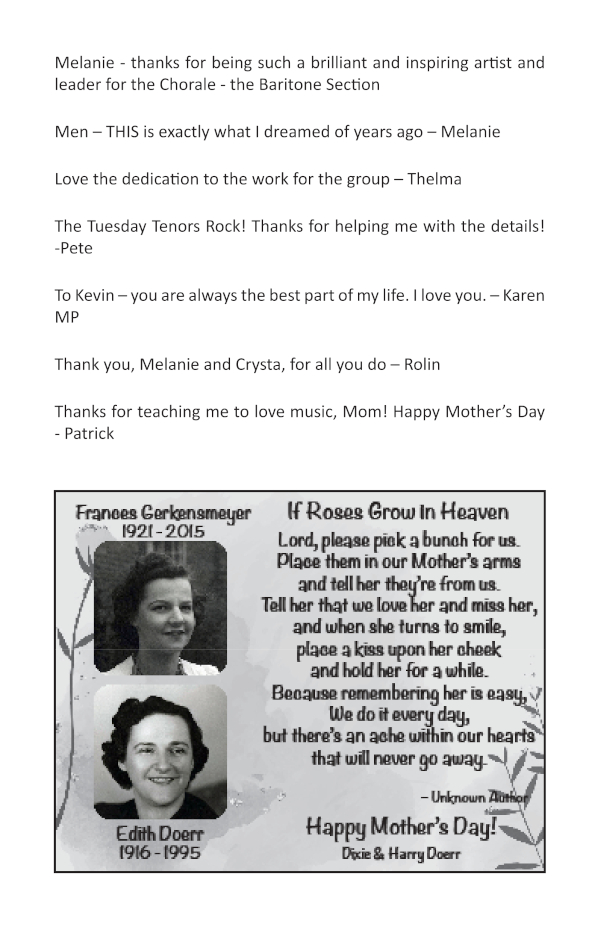 Melanie - thanks for being such a brilliant and inspiring artist and
leader for the Chorale - the Baritone Section
Men – THIS is exactly what I dreamed of years ago – Melanie
Love the dedication to the work for the group – Thelma
The Tuesday Tenors Rock! Thanks for helping me with the details!
-Pete
To Kevin – you are always the best part of my life. I love you. – Karen
MP
Thank you, Melanie and Crysta, for all you do – Rolin
Thanks for teaching me to love music, Mom! Happy Mother’s Day
- Patrick
Frances Gerkensmeyer
1921 - 2015
Edith Doerr
1916 - 1995
If Roses Grow In Heaven
Lord, please pick a bunch for us.
Place them in our Mother’s arms
and tell her they’re from us.
Tell her that we love her and miss her,
and when she turns to smile,
place a kiss upon her cheek
and hold her for a while.
Because remembering her is easy,
We do it every day,
but there’s an ache within our hearts
that will never go away.
– Unknown Author
Happy Mother’s Day!
Dixie & Harry Doerr